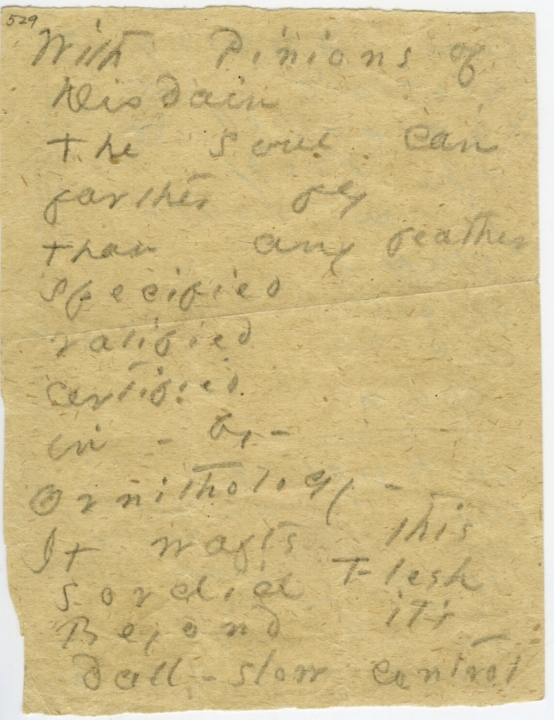 529
With Pinions of
Disdain
The Soul can
farther fly
than any feather
specified
ratified
certified
in - by -
Ornithology -
It wafts this
sordid Flesh
Beyond it's
Dull - slow control